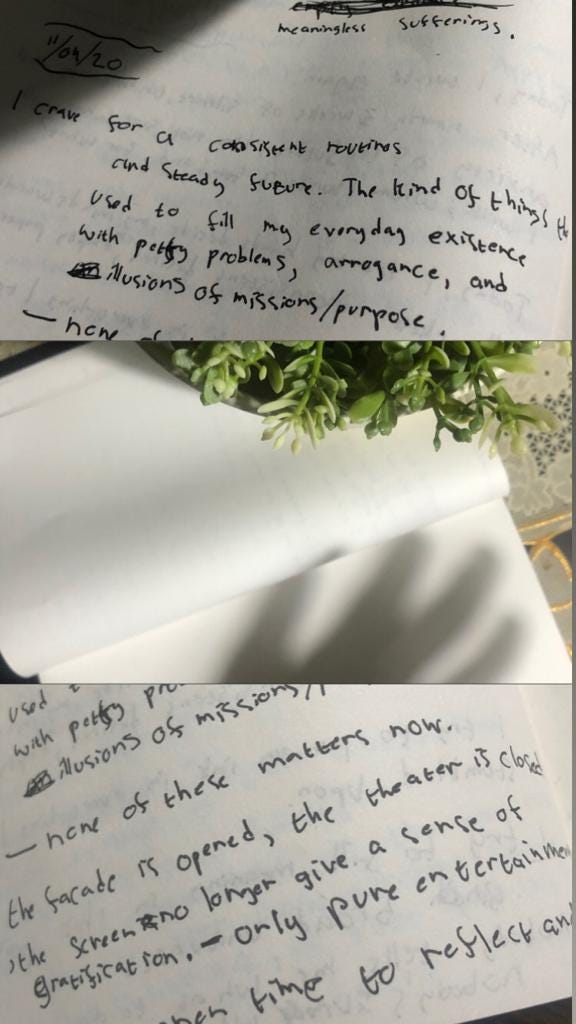 meaningless sufferings.
11/04/20
I crave for a consistent routines
and steady future. The kind of things
used to fill my everyday existence
with petty problems, arrogance, and
illusions of missions/purpose.
— none of
used
with petty
illusions of missions/
— none of these matters now.
the facade is opened, the theater is closed
, the screen no longer give a sense of
gratification. – only pure entertainmen
time to reflect and